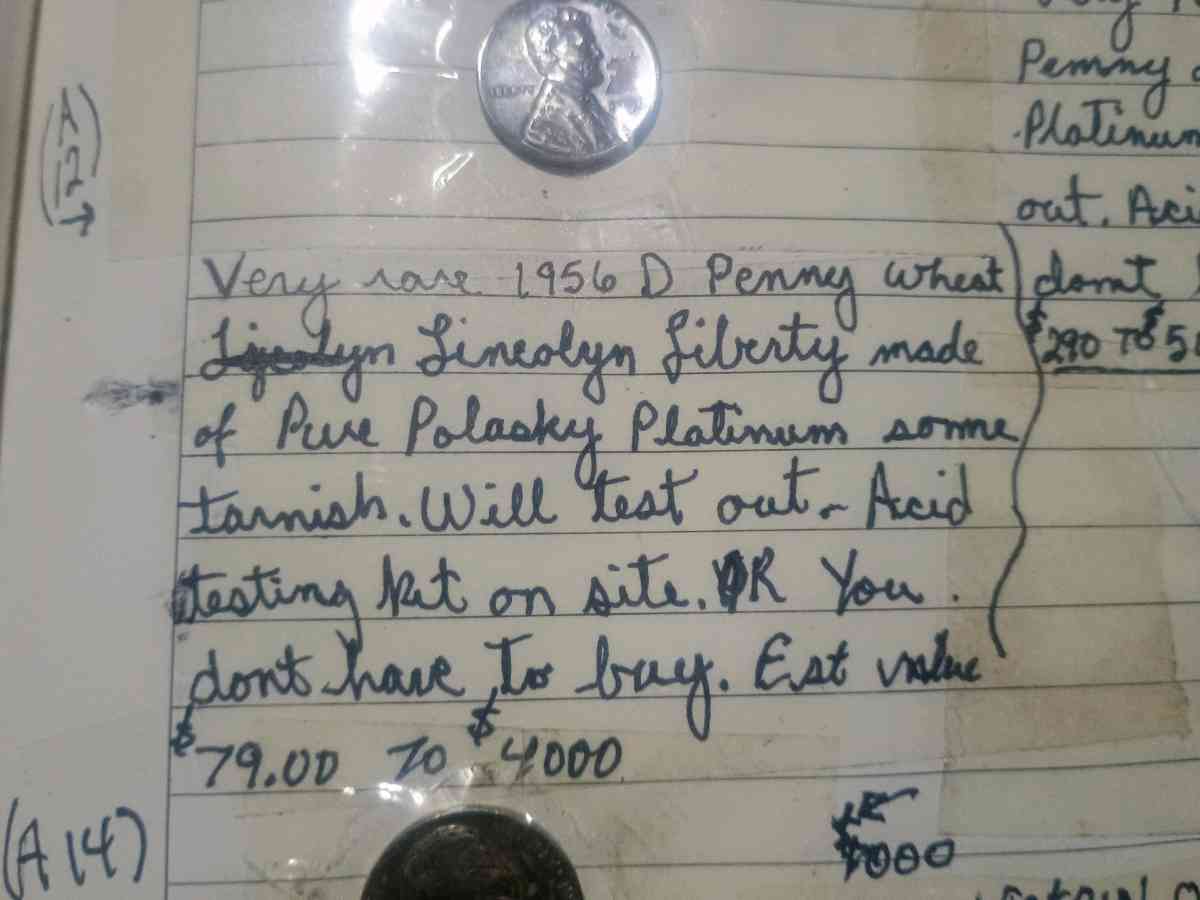 (A
12)→
Penny
Platinum
out. Aci
Very rare 1956 D Penny wheat
Lincolyn Liberty made
of Pure Polasky Platinum some
tarnish. Will test out - Acid
testing kit on site. OR You.
dont have To buy. Est value
$79.00 TO $4000
dont
$290 TO $5
(A 14)
$1000